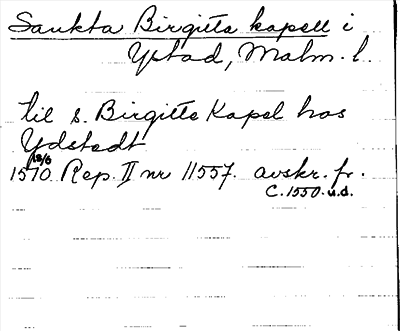 Sankta Birgitta kapell i
Ystad, Malm. l.
til s. Birgitte Kapel hos
Ydstedt
18/6
1510 Rep. II nr 11557. avskr. fr.
c. 1550. u.d.